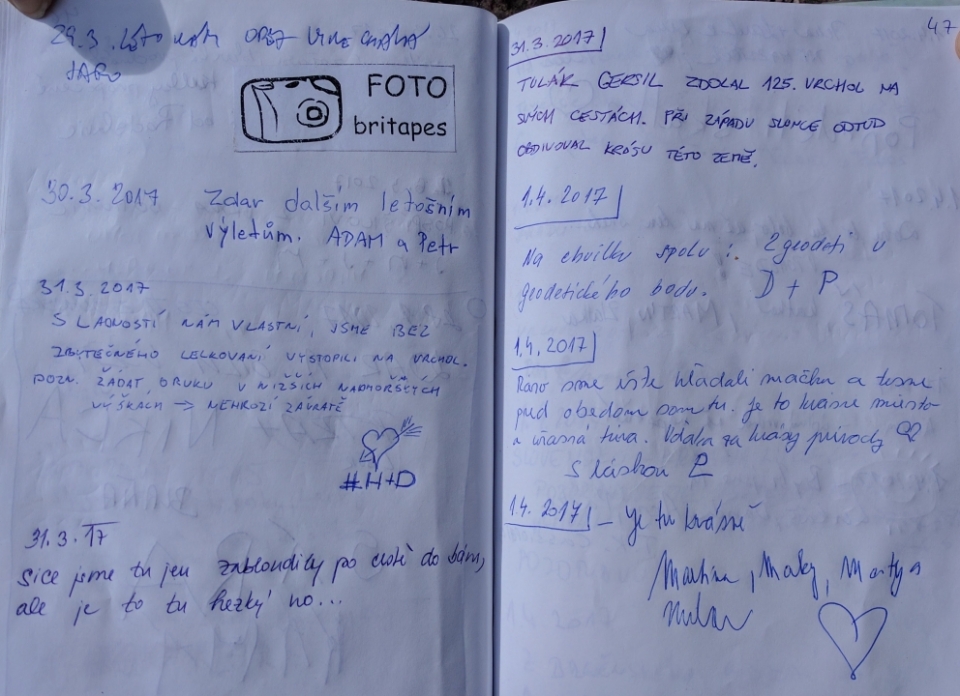 29.3. Léto nám opět
JARO
FOTO
britapes
30.3.2017 Zdar dalším letošním
výletům. ADAM a Petr
31.3.2017
S LADNOSTÍ NÁM VLASTNÍ, JSME BEZ
ZBYTEČNÉHO LELKOVÁNÍ VYSTOPILI NA VRCHOL.
POZN. ŽÁDAT DRUHU V NIŽŠÍCH NADMOŘSKÝCH
VÝŠKÁCH → NEHROZÍ ZÁVRATĚ
#H+D
31.3.17
Sice jsme tu jen zabloudily po cestě do
ale je to tu hezký no...
47
31.3.2017
TULÁK GERSIL ZDOLAL 125. VRCHOL NA
SVÝCH CESTÁCH. PŘI ZÁPADU SLUNCE ODTUD
OBDIVOVAL KRÁSU TÉTO ZEMĚ.
1.4.2017
Na chvilku spolu: 2 geodeti u
geodetického bodu. D + P
1.4.2017
Ráno sme ešte hľadali mačku a tesne
pred obedom som tu. Je to krásne miesto
a úžasná túra. Vďaka za krásy prírody
S láskou
1.4.2017 – Je tu krásně
Martina, Maky, Marty a